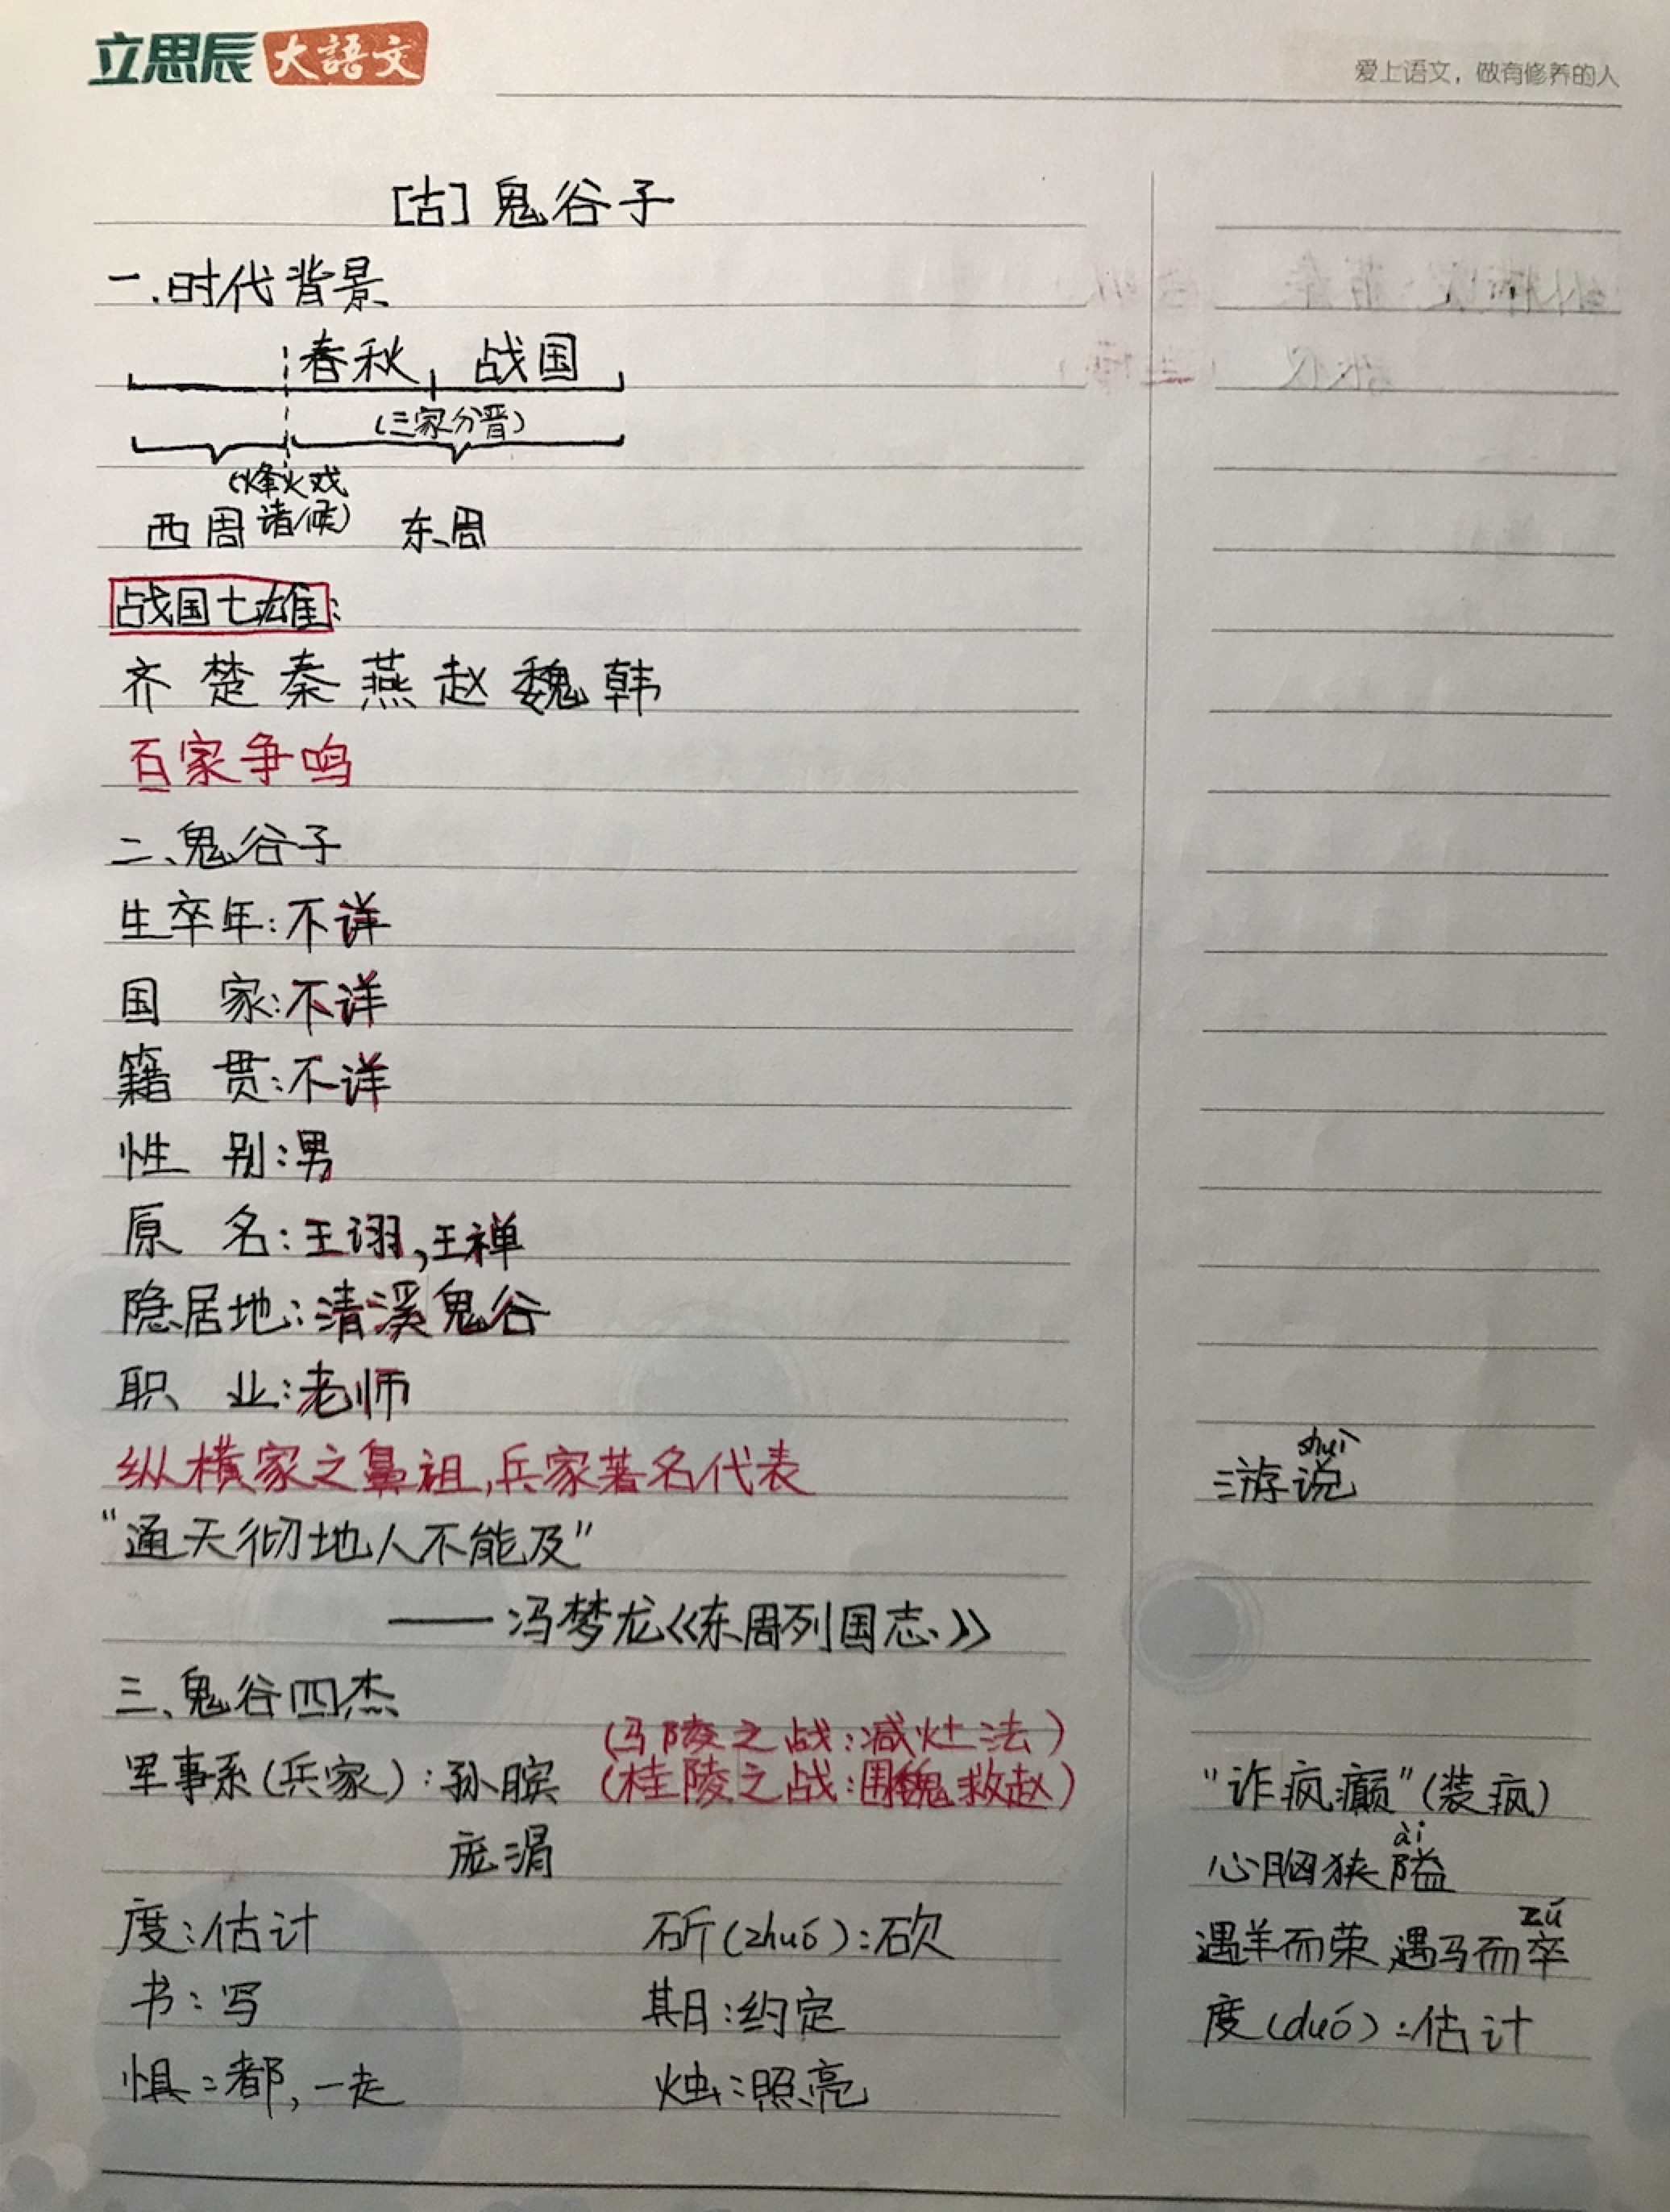 立思辰 大語文
爱上语文，做有修养的人
[古] 鬼谷子
一.时代背景
春秋 战国
(三家分晋)
(烽火戏
诸候)
西周 东周
战国七雄:
齐 楚 秦 燕 赵 魏 韩
百家争鸣
二、鬼谷子
生卒年:不详
国 家:不详
籍 贯:不详
性 别:男
原 名:王诩,王禅
隐居地:清溪鬼谷
职 业:老师
纵横家之鼻祖,兵家著名代表
"通天彻地人不能及"
——冯梦龙《东周列国志》
三、鬼谷四杰
(马陵之战:减灶法)
军事系(兵家):孙膑 (桂陵之战:围魏救赵)
庞涓
度:估计 斫(zhuó):砍
书:写 期:约定
惧:都,一走 烛:照亮
shuì
游说
"诈疯癫"(装疯)
ài
心胸狭隘
zú
遇羊而荣,遇马而卒
度(duó):估计